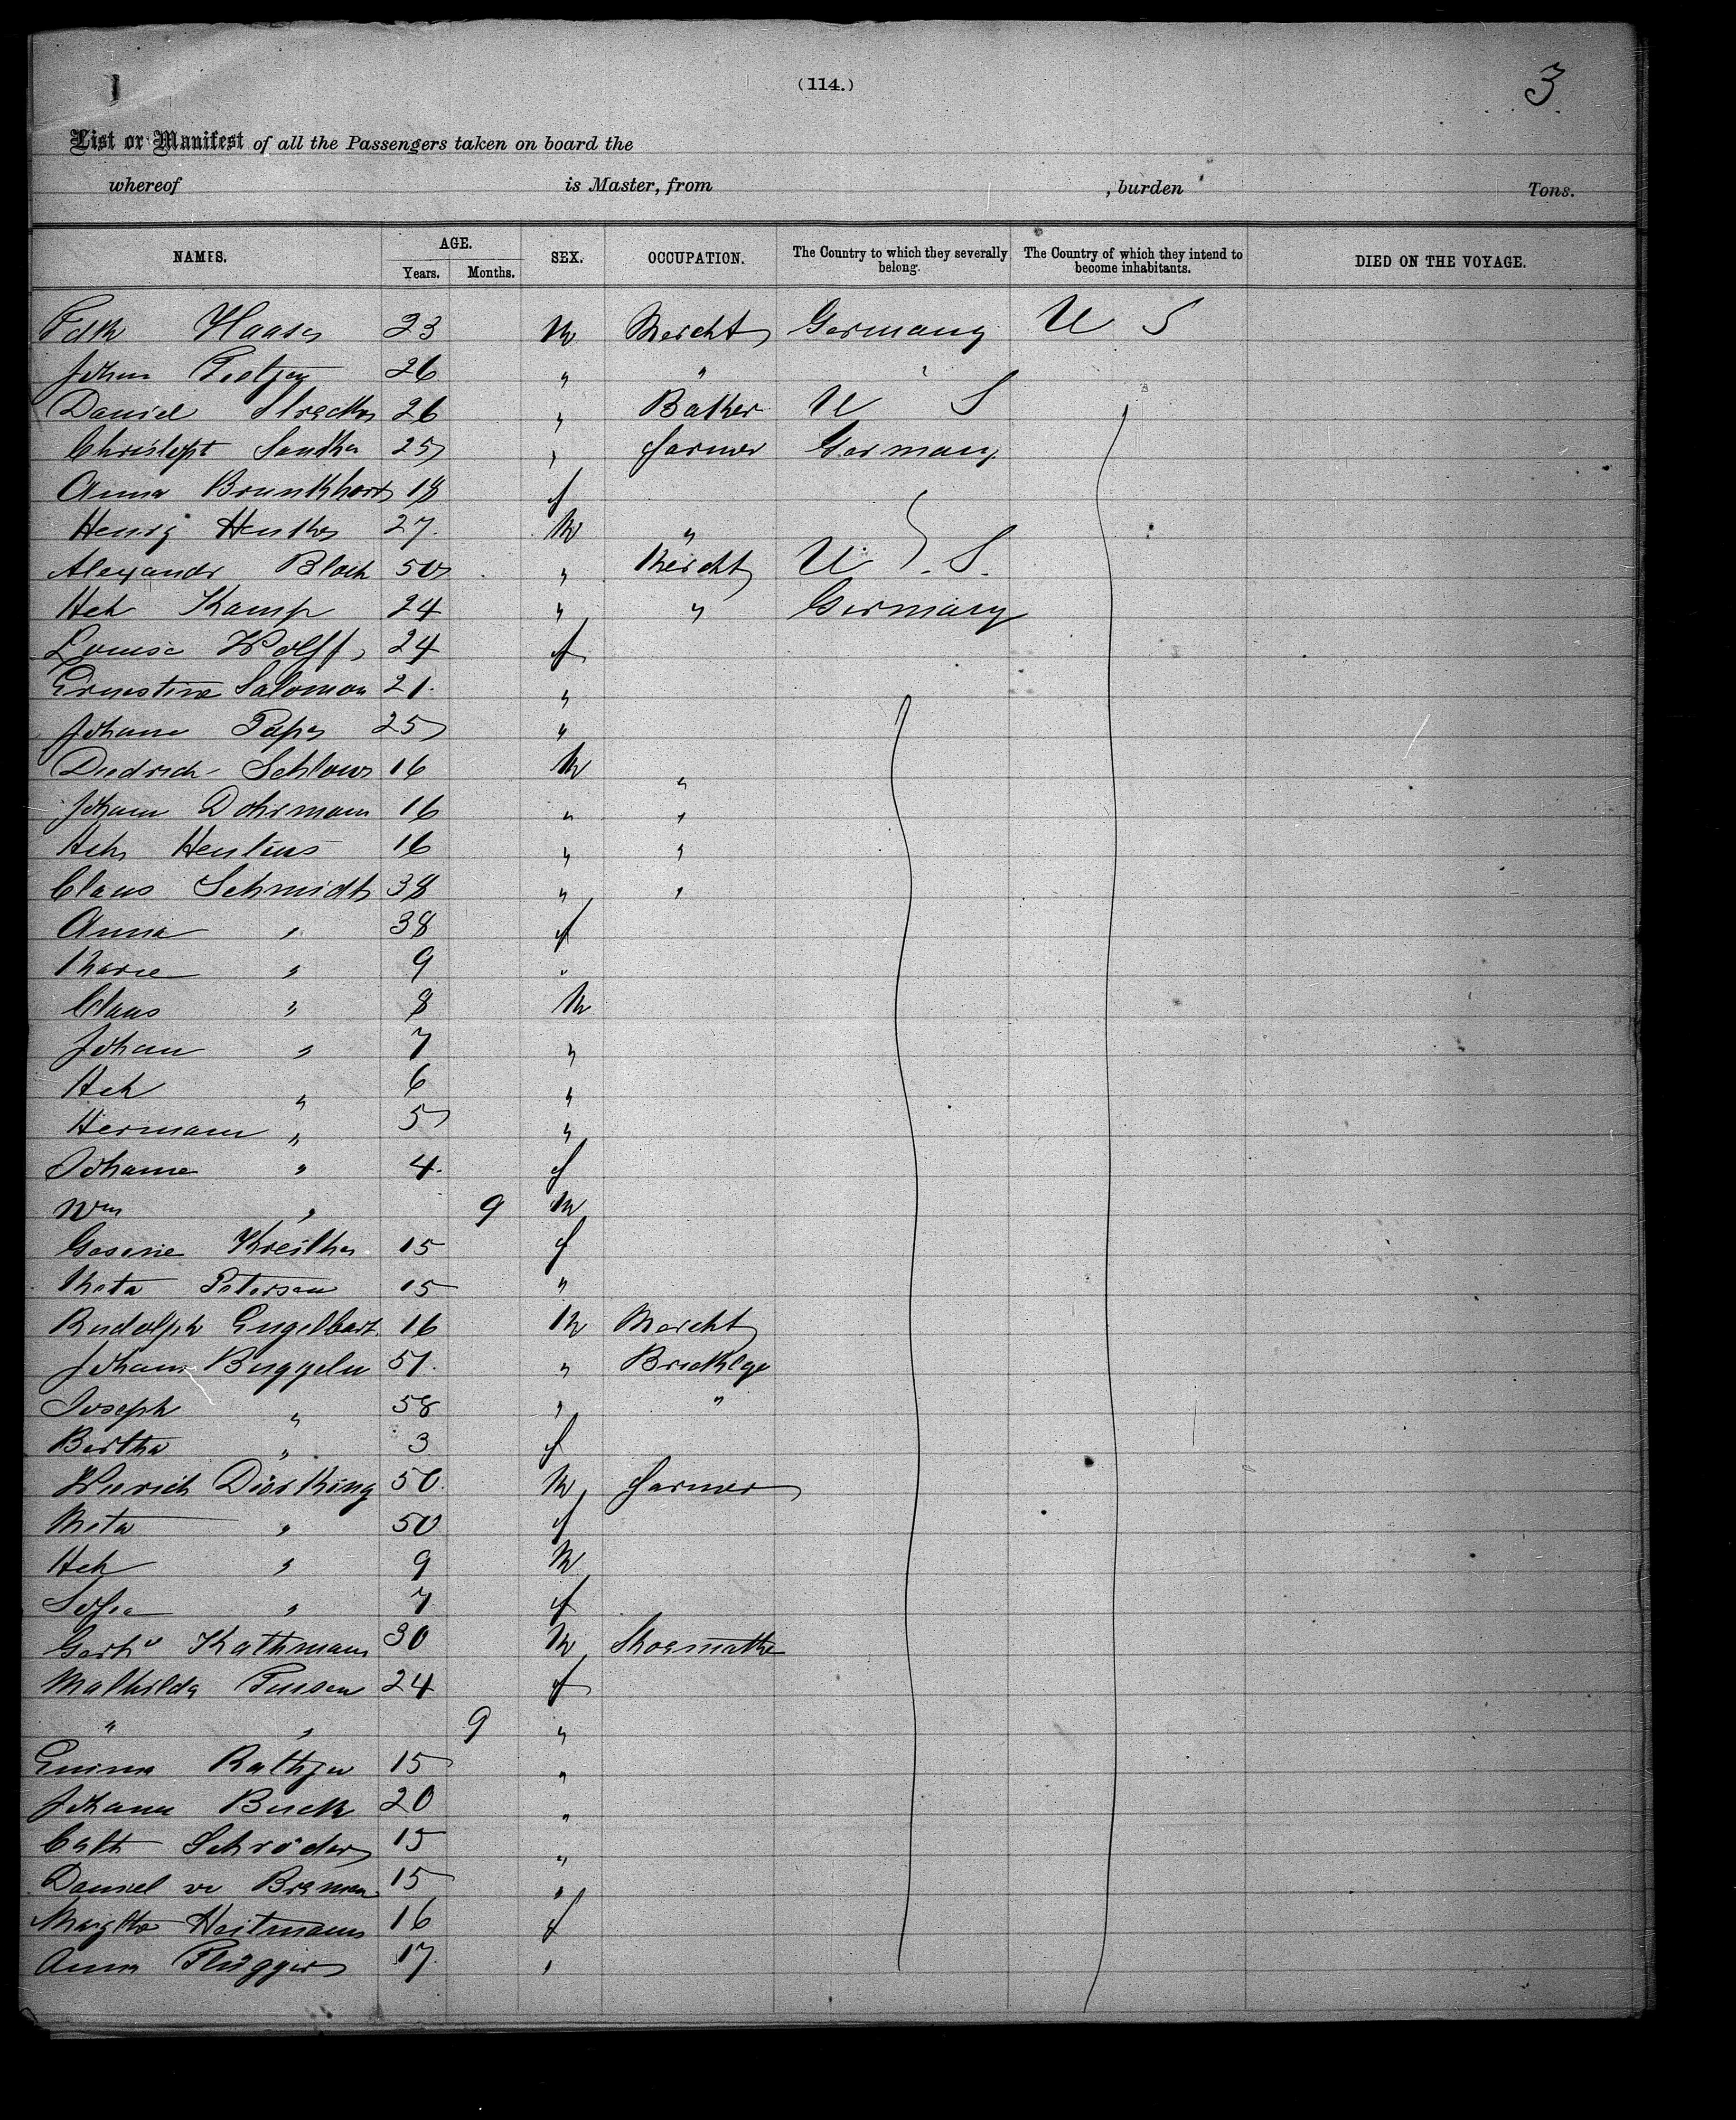 1
(114.)
3
List or Manifest of all the Passengers taken on board the
whereof is Master, from , burden Tons.
NAMES. AGE. SEX. OCCUPATION. The Country to which they severally belong. The Country of which they intend to become inhabitants. DIED ON THE VOYAGE.
Years. Months.
Haase 23 M Mercht Germany U S
Johan 26 " " "
Daniel 26 " Baker U S
25 " farmer Germany
Anna Brunkhorst 18 f
Henry 27 M "
Alexandr Bloch 50 " Mercht U.S.
Hch Kamp 24 " " Germany
Louise Wolff 24 f
Ernestine Salomon 21 "
Johane Pape 25 "
Diedrich 16 M "
Johann Dohrmann 16 " "
Hch 16 " "
Claus Schmidt 38 " "
Anna " 38 f
Marie " 9 "
Claus " 8 M
Johan " 7 "
Hch " 6 "
Hermann " 5 "
Johanne " 4 f
Wm " 9 M
Gesine 15 f
Meta Petersen 15 "
Rudolph Engelbart 16 M Mercht
Johann Buggeln 51 "
Joseph " 58 " "
Bertha " 3 f
Dierking 50 M farmer
Meta " 50 f
Hch " 9 M
Sofie " 7 f
Kathmann 30 M
Mathilda 24 f
" " 9 "
Emma Rathjen 15 "
Johann Buck 20 "
Cath Schröder 15 "
Daniel 15 "
Heitmann 16 f
Anna Flügger 17 "